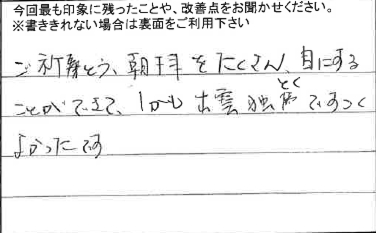 今回最も印象に残ったことや、改善点をお聞かせください。
※書ききれない場合は裏面をご利用下さい
ご祈祷とう、朝拝をたくさん、目にする
とく
ことができて、しかも出雲独 ですっ
よかったです